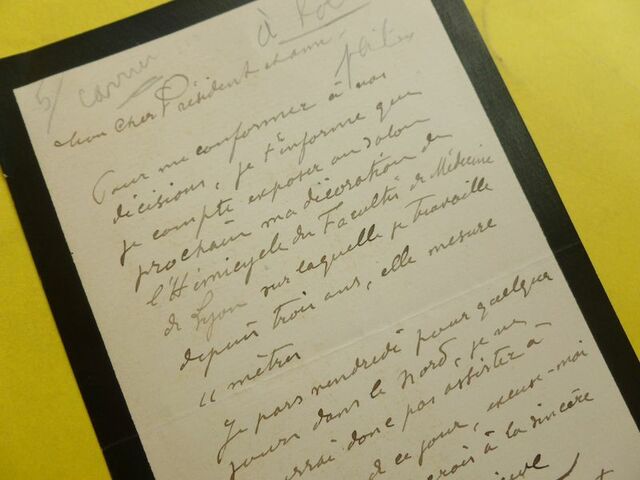 5/ carrier
à
Mon cher Président et ami,
Pour me conformer à vos
décisions, je t'informe que
je compte exposer au salon
prochain ma décoration de
l'Hémicycle du Faculté de Médecine
de Lyon sur laquelle je travaille
depuis trois ans, elle mesure
11 mètres
Je pars vendredi pour quelque
jours dans le Nord, je ne
donc pas assister à
de ce jour, excuse-moi
crois à la sincère